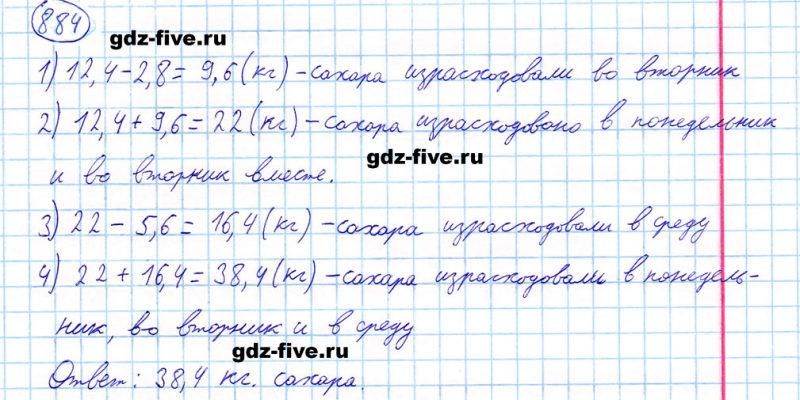 884
gdz-five.ru
1) 12,4 - 2,8 = 9,6 (кг) - сахара израсходовали во вторник
2) 12,4 + 9,6 = 22 (кг) - сахара израсходовано в понедельник
gdz-five.ru
и во вторник вместе.
3) 22 - 5,6 = 16,4 (кг) - сахара израсходовали в среду
4) 22 + 16,4 = 38,4 (кг) - сахара израсходовали в понедель-
ник, во вторник и в среду
gdz-five.ru
Ответ: 38,4 кг. сахара.